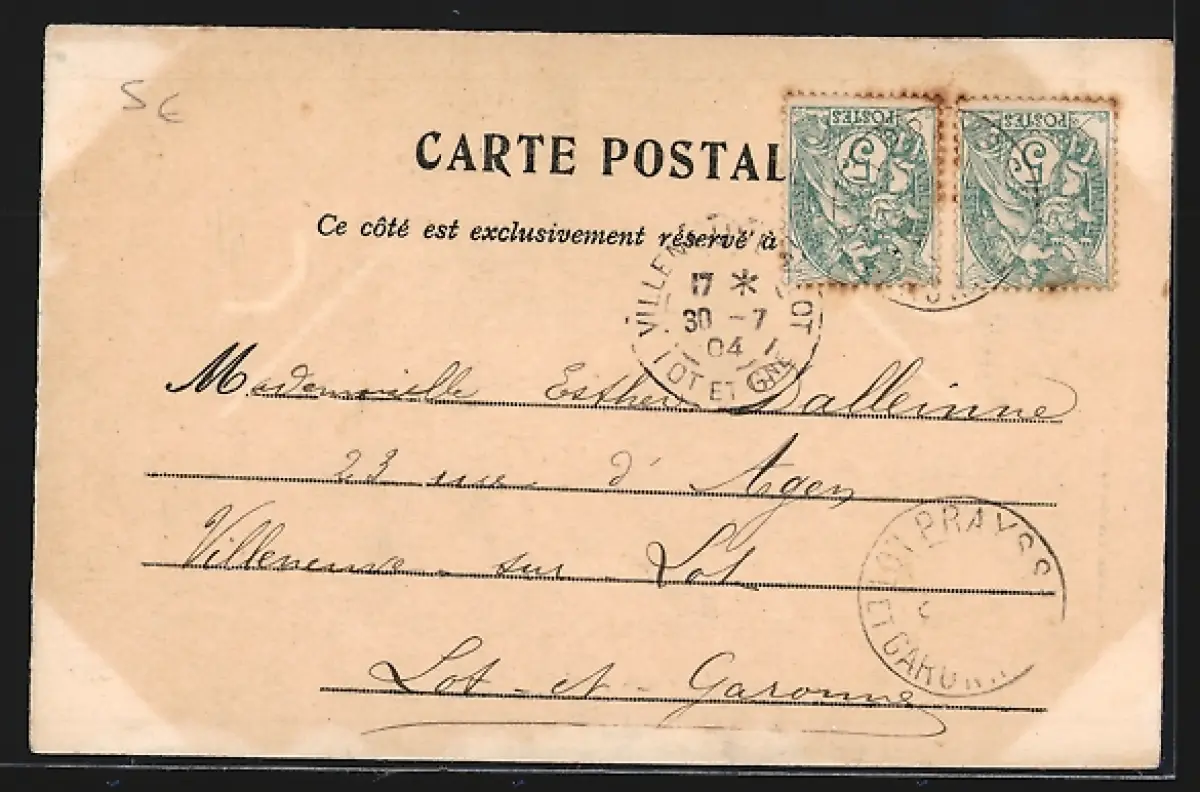 5€
CARTE POSTAL
Ce côté est exclusivement réservé à
POSTES
5
POSTES
5
VILLEN OT
17 *
30 - 7
04
LOT ET GNE
Mademoiselle Esther Dalleinne
23 rue d'Agen
Villeneuve sur Lot
Lot-et-Garonne
PRAYSS
LOT ET GARONN